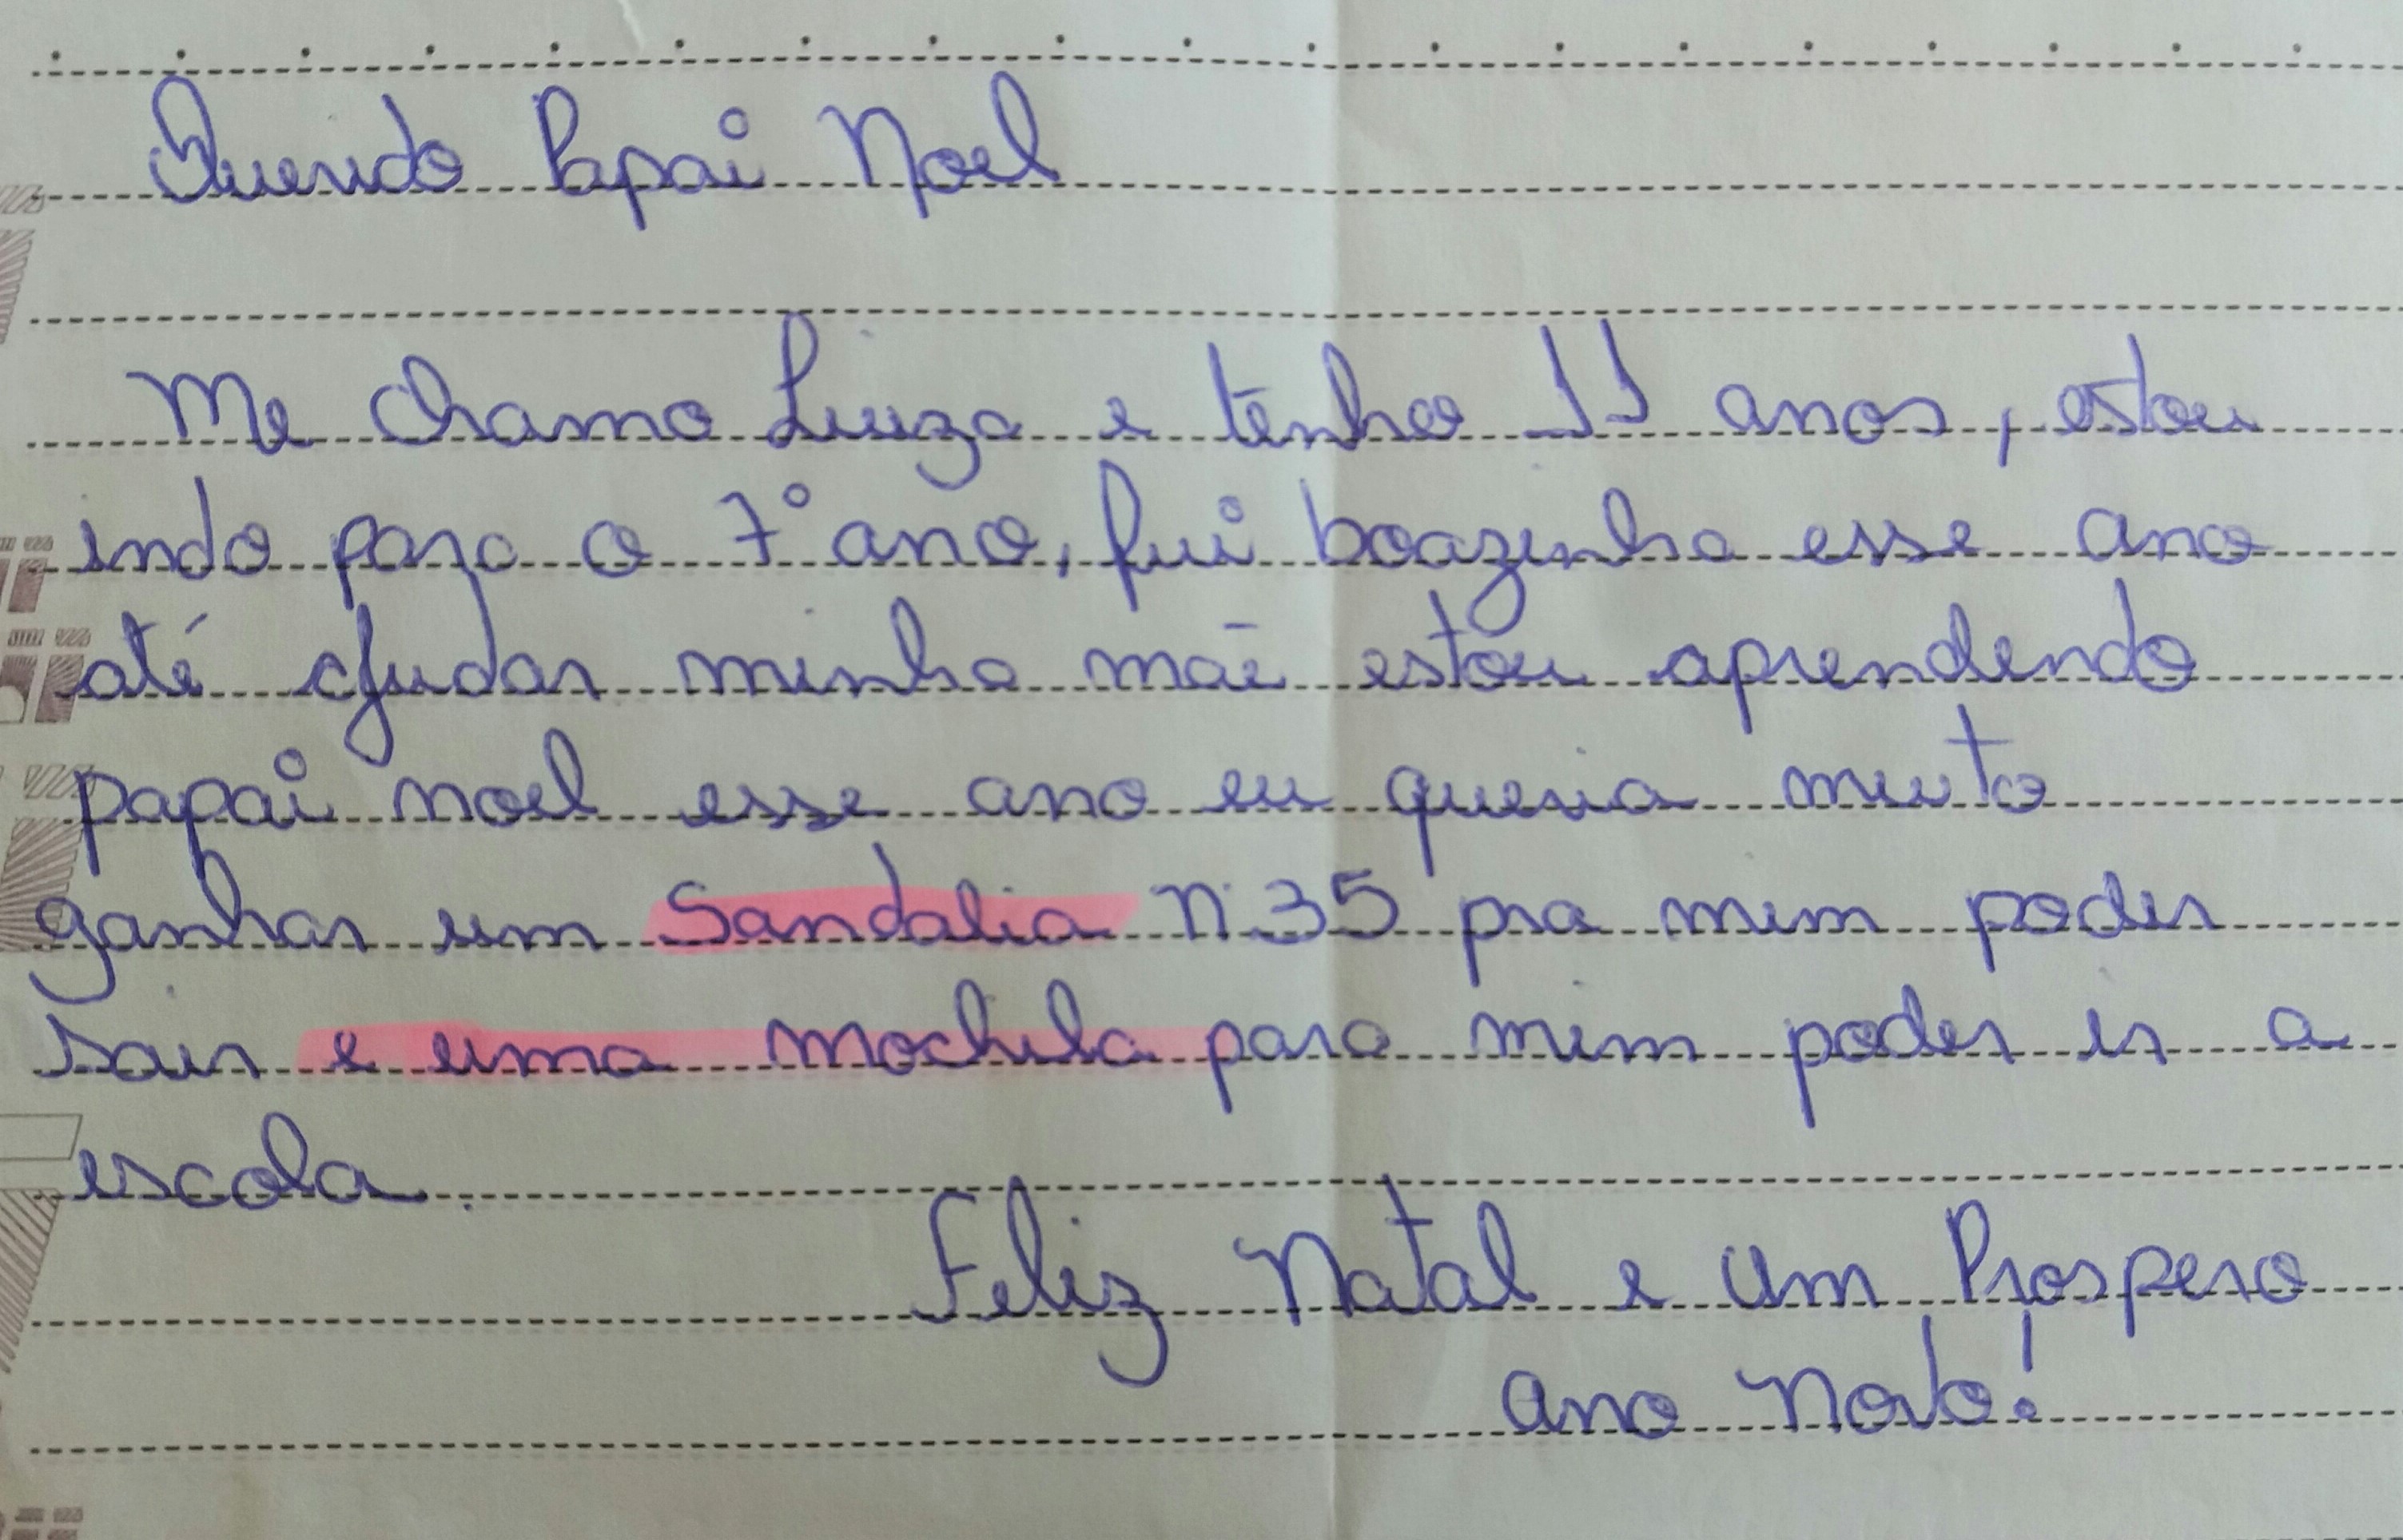 Querido Papai Noel
Me chamo Luiza e tenho 11 anos, estou
indo para o 7° ano, fui boazinha esse ano
até ajudar minha mãe estou aprendendo
papai noel esse ano eu queria muito
ganhar um Sandalia N.35 pra mim poder
sair e uma mochila para mim poder ir a
escola.
Feliz Natal e um Prospero
ano Novo!